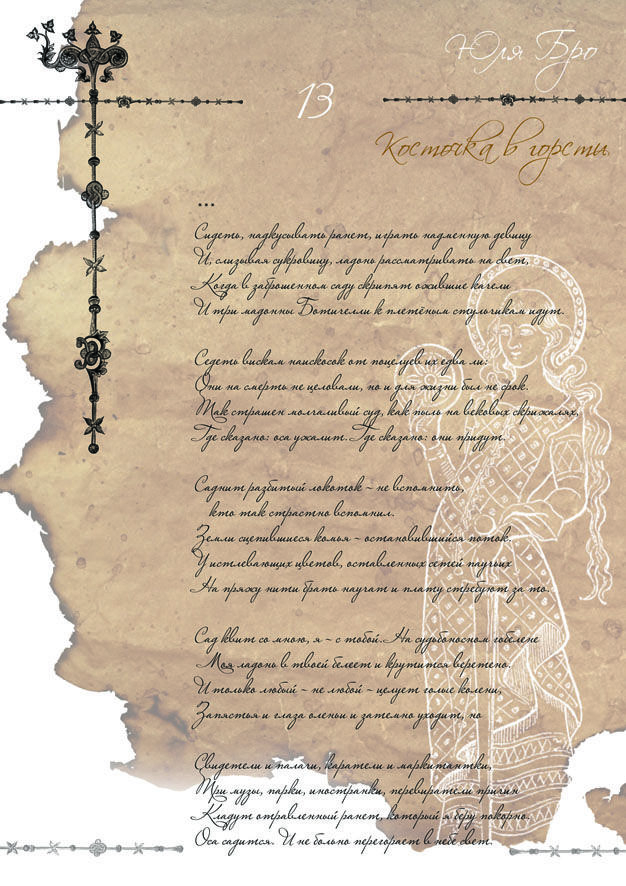 Юля Бро
13
Косточка в горсти
...
Сидеть, надкусывать ранет, играть надменную девицу
И, слизывая сукровицу, ладонь рассматривать на свет,
Когда в заброшенном саду скрипят ожившие качели
И три мадонны Ботичелли к плетёным стульчикам идут.
Седеть вискам наискосок от поцелуев их едва ли:
Они на смерть не целовали, но и для жизни был не срок.
Так страшен молчаливый суд, как пыль на вековых скрижалях,
Где сказано: оса ужалит. Где сказано: они придут.
Саднит разбитый локоток – не вспомнить,
кто так страстно вспомнил.
Земли сцепившиеся комья – остановившийся поток.
У истлевающих цветов, оставленных сетей паучьих
На пряжу нити брать научат и плату стребуют за то.
Сад квит со мною, я – с тобой. На судьбоносном гобелене
Моя ладонь в твоей белеет и крутится веретено.
И только любый – не любой – целует голые колени,
Запястья и глаза оленьи и затемно уходит, но
Свидетели и палачи, каратели и маркитантки,
Три музы, парки, иностранки, перевиратели причин
Кладут отравленный ранет, который я беру покорно.
Оса садится. И не больно перегорает в небе свет.